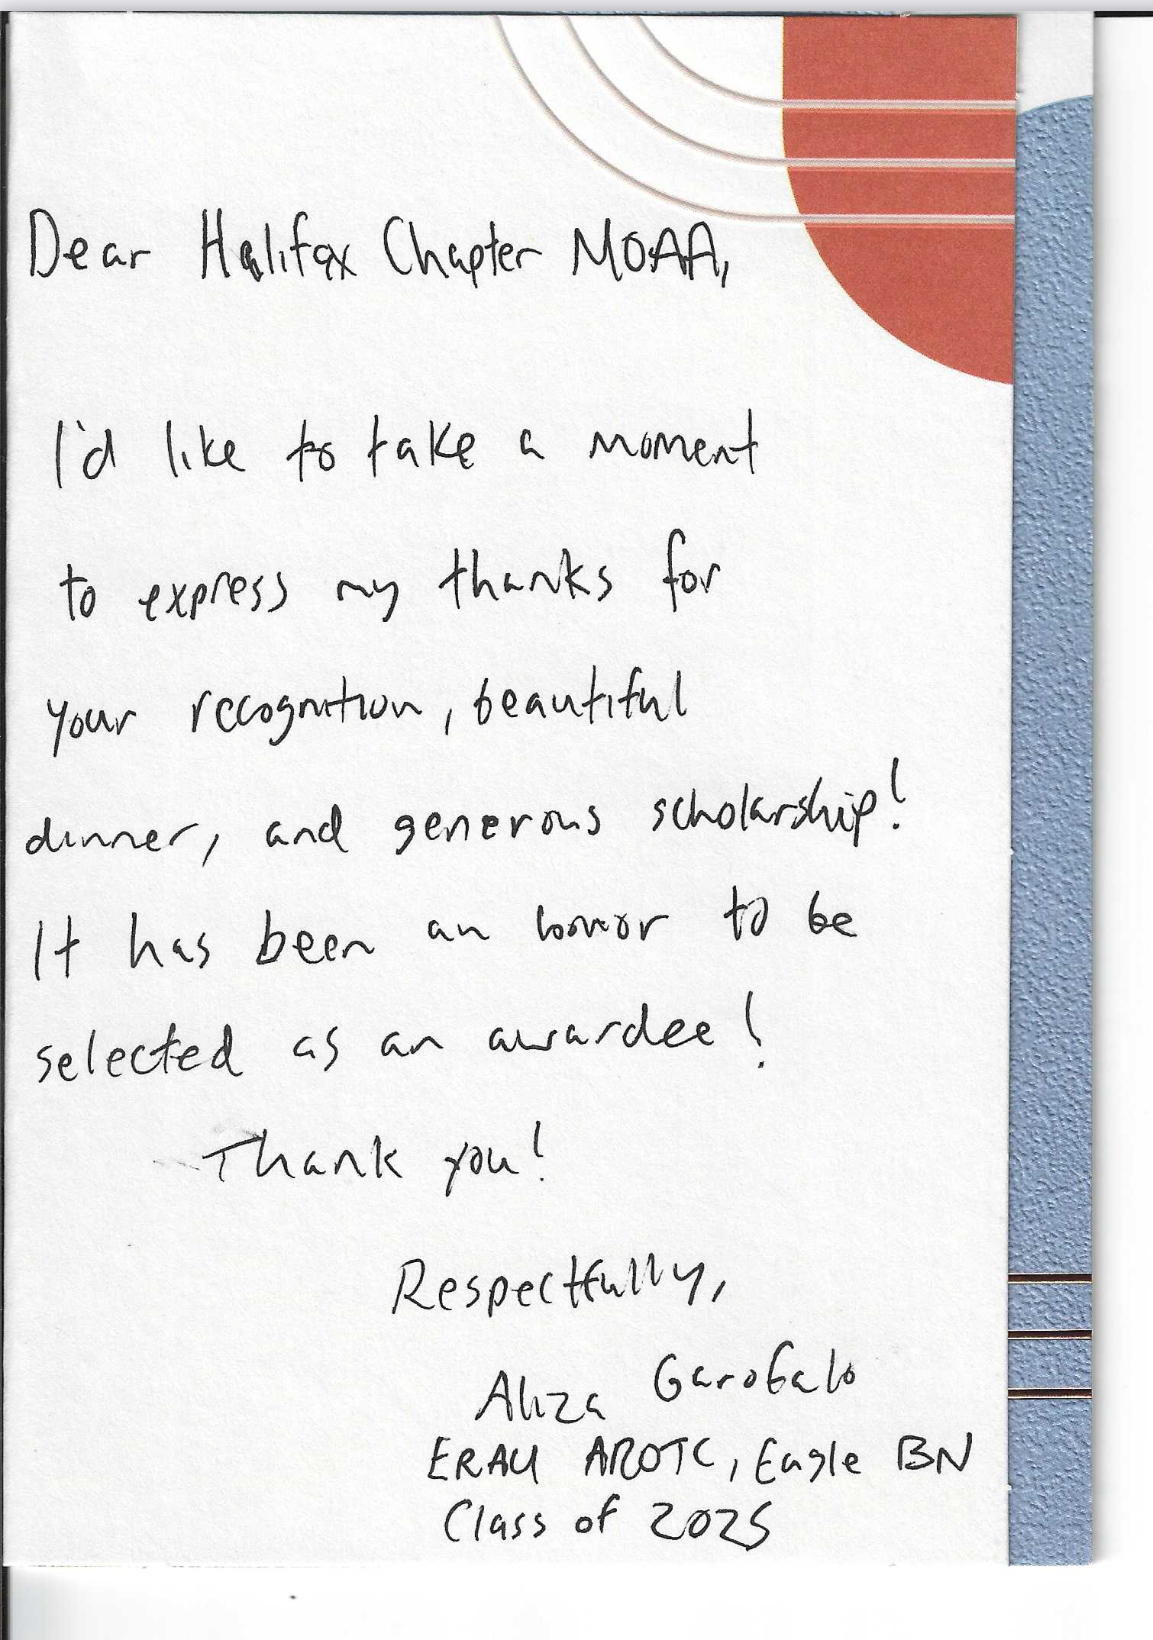 Dear Halifax Chapter MOAA,
I'd like to take a moment
to express my thanks for
your recognition, beautiful
dinner, and generous scholarship!
It has been an honor to be
selected as an awardee!
Thank you!
Respectfully,
Aliza Garofalo
ERAU AROTC, Eagle BN
Class of 2025